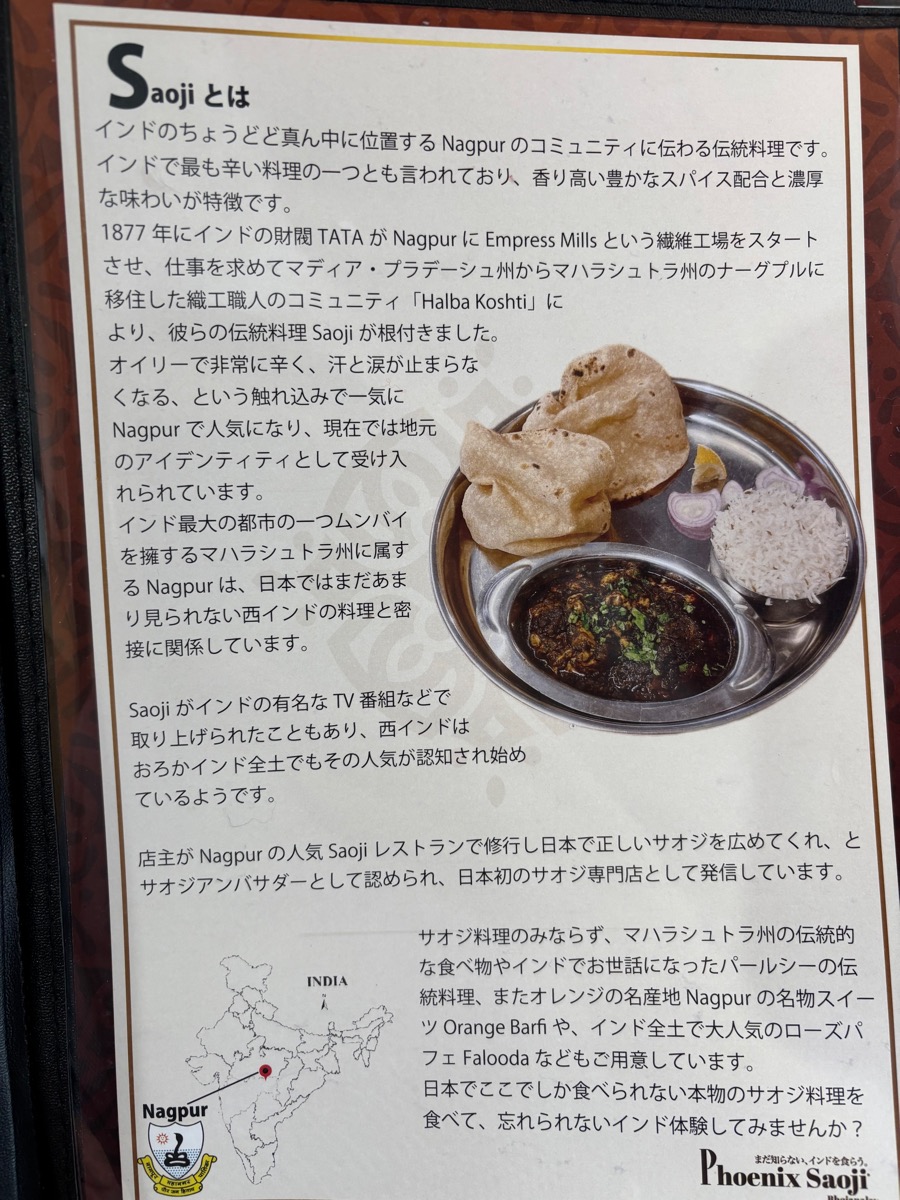 Saoji とは
インドのちょうどど真ん中に位置する Nagpur のコミュニティに伝わる伝統料理です。
インドで最も辛い料理の一つとも言われており、香り高い豊かなスパイス配合と濃厚
な味わいが特徴です。
1877 年にインドの財閥 TATA が Nagpur に Empress Mills という繊維工場をスタート
させ、仕事を求めてマディア・プラデーシュ州からマハラシュトラ州のナーグプルに
移住した織工職人のコミュニティ「Halba Koshti」に
より、彼らの伝統料理 Saoji が根付きました。
オイリーで非常に辛く、汗と涙が止まらな
くなる、という触れ込みで一気に
Nagpur で人気になり、現在では地元
のアイデンティティとして受け入
れられています。
インド最大の都市の一つムンバイ
を擁するマハラシュトラ州に属す
る Nagpur は、日本ではまだあま
り見られない西インドの料理と密
接に関係しています。
Saoji がインドの有名な TV 番組などで
取り上げられたこともあり、西インドは
おろかインド全土でもその人気が認知され始め
ているようです。
店主が Nagpur の人気 Saoji レストランで修行し日本で正しいサオジを広めてくれ、と
サオジアンバサダーとして認められ、日本初のサオジ専門店として発信しています。
サオジ料理のみならず、マハラシュトラ州の伝統的
な食べ物やインドでお世話になったパールシーの伝
統料理、またオレンジの名産地 Nagpur の名物スイー
ツ Orange Barfi や、インド全土で大人気のローズパ
フェ Falooda などもご用意しています。
日本でここでしか食べられない本物のサオジ料理を
食べて、忘れられないインド体験してみませんか？
INDIA
N
Nagpur
まだ知らない、インドを食らう。
Phoenix Saoji